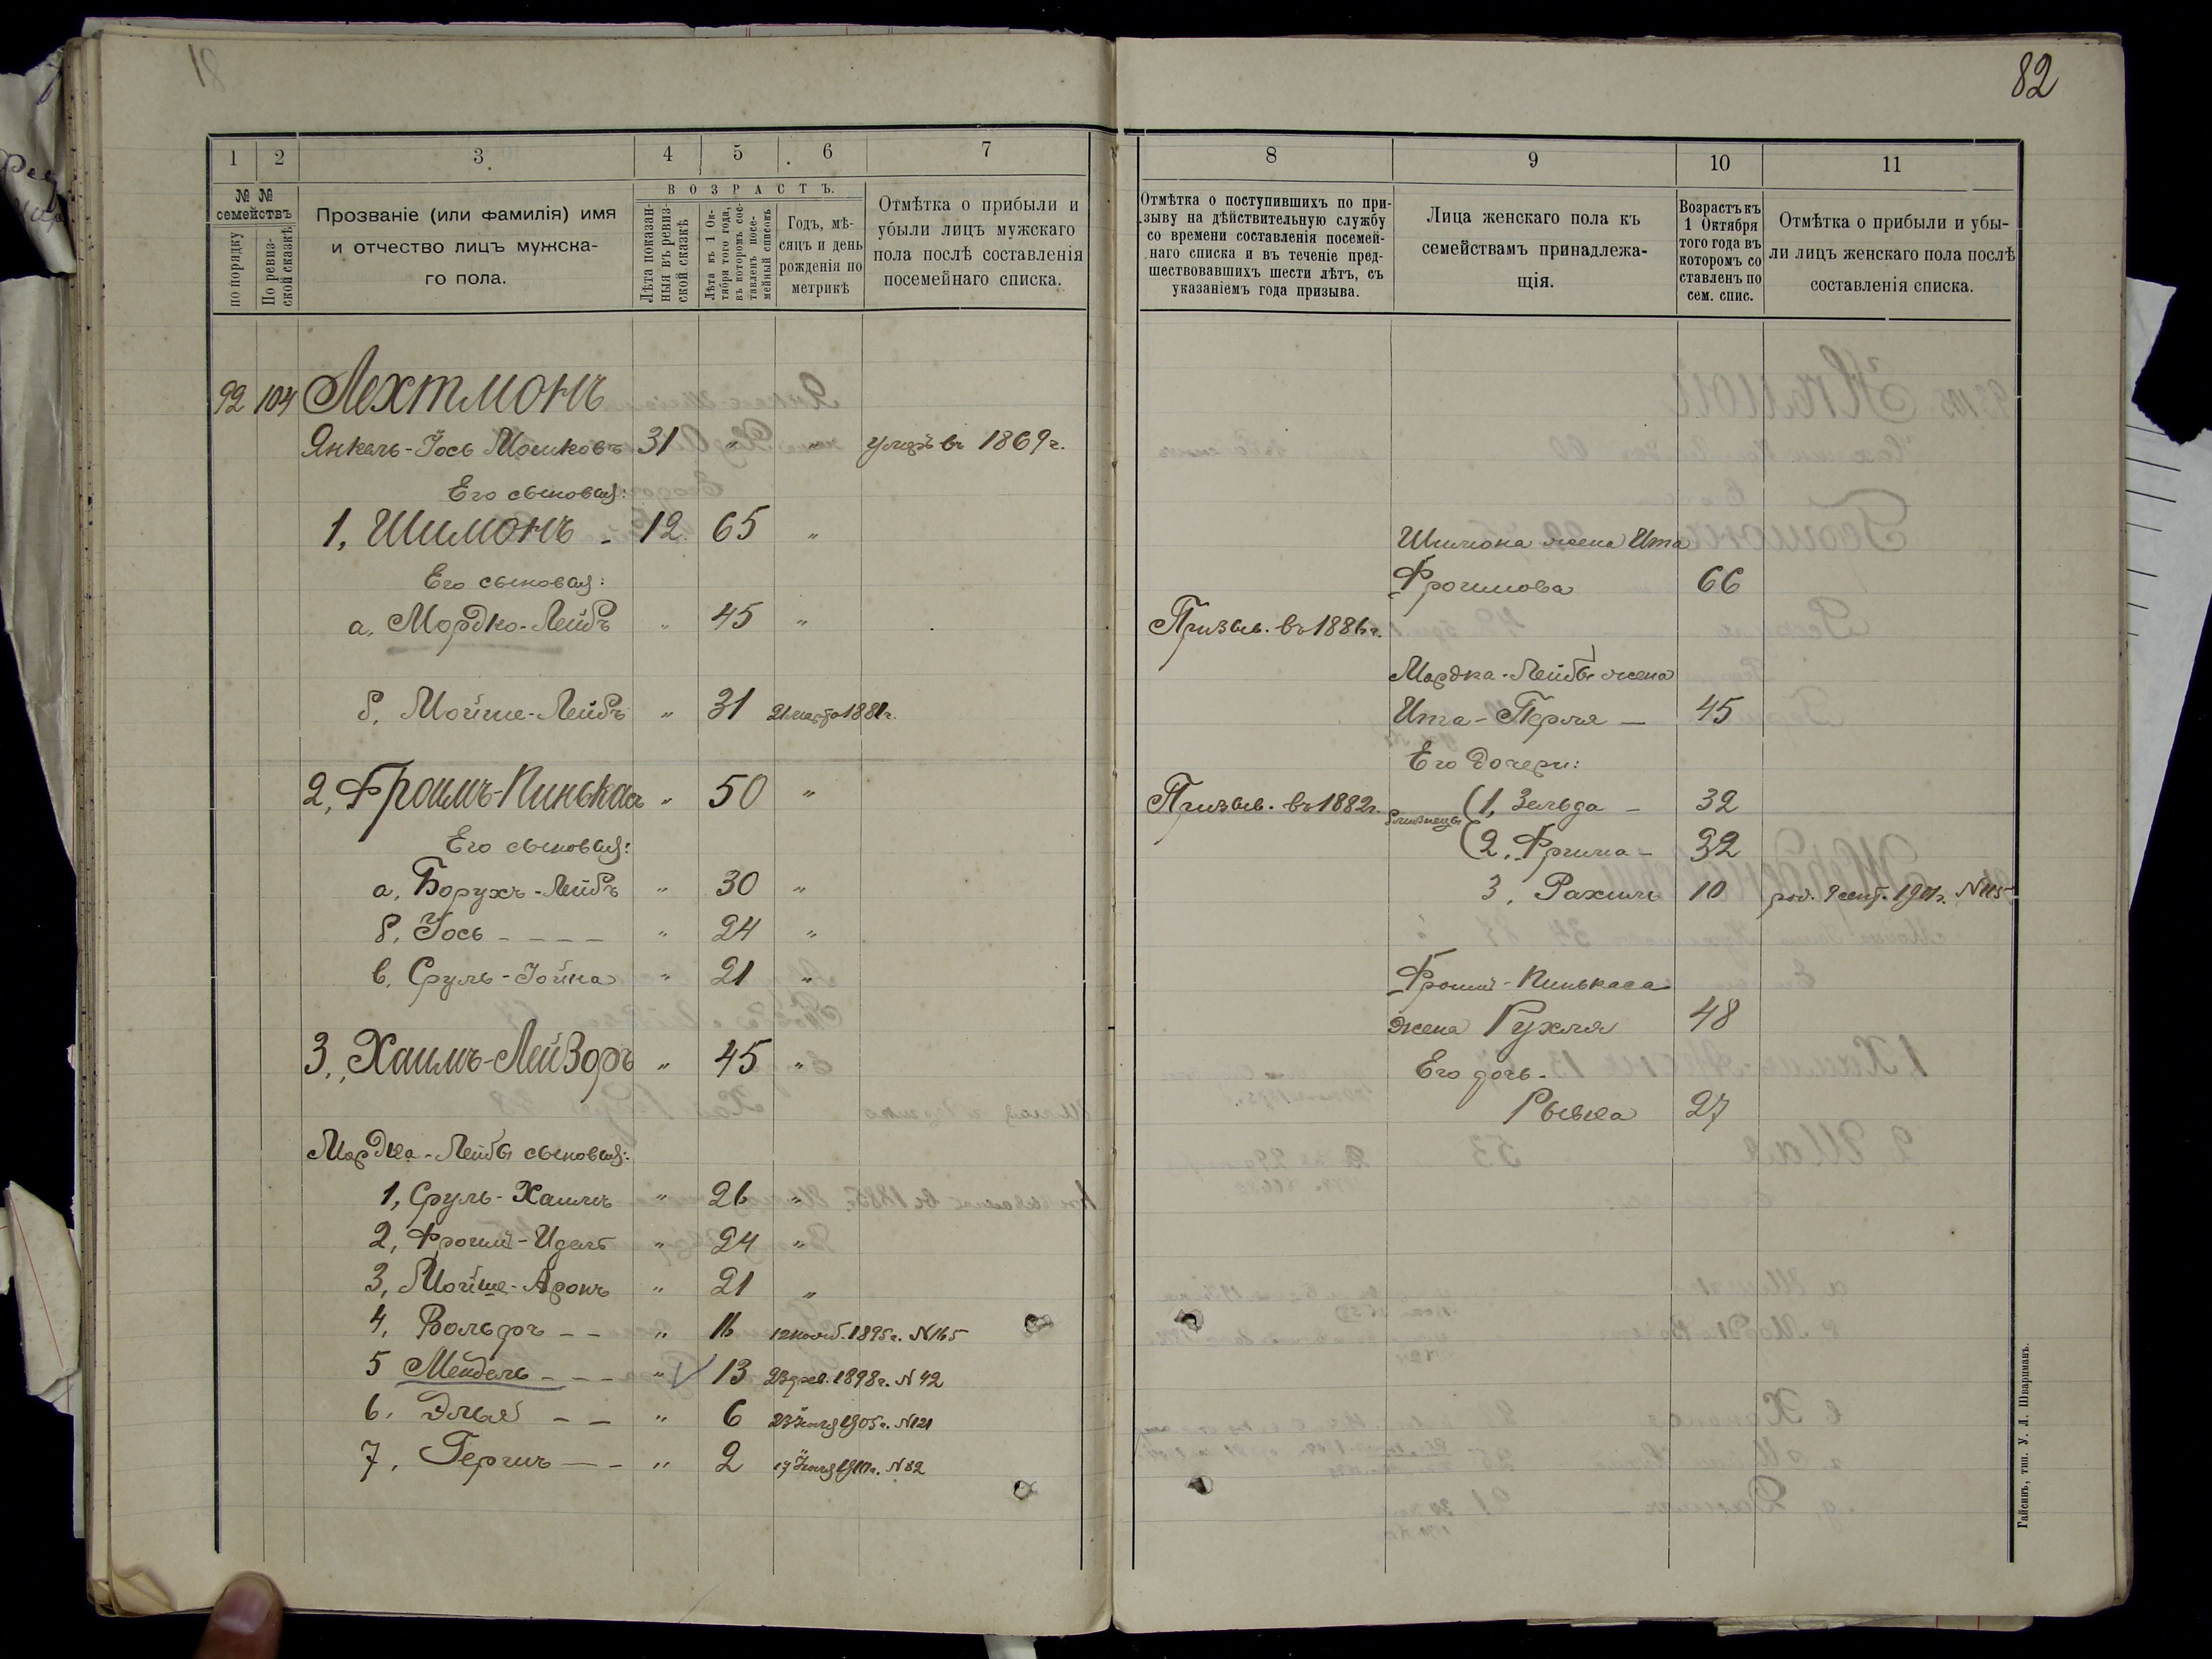 81
1
2
3
4
5
6
7
№ №
семействъ
по порядку
По ревиз-
ской сказкѣ
Прозваніе (или фамилія) имя
и отчество лицъ мужска-
го пола.
ВОЗРАСТЪ.
Лѣта показан-
ныя въ ревиз-
ской сказкѣ
Лѣта къ 1 Ок-
тября того года,
въ которомъ сос-
тавленъ посе-
мейный списокъ
Годъ, мѣ-
сяцъ и день
рожденія по
метрикѣ
Отмѣтка о прибыли и
убыли лицъ мужскаго
пола послѣ составленія
посемейнаго списка.
92 104 Лехтмонъ
Янкель-Іось Мошковъ 31 " " умеръ въ 1869 г.
Его сыновья:
1, Шимонъ - 12 65 "
Его сыновья:
а. Мордко-Лейбъ " 45 "
б. Мойше-Лейбъ " 31 21 марта 1881г.
2, Фроимъ-Пинькасъ " 50 "
Его сыновья:
а. Борухъ-Лейбъ " 30 "
б. Іось - - - - " 24 "
в. Сруль-Іойна " 21 "
3., Хаимъ-Лейзоръ " 45 "
Мордка-Лейбы сыновья:
1, Сруль-Хаимъ " 26 "
2, Фроим-Идель " 24 "
3, Мойше-Аронъ " 21 "
4, Вольфъ - - " 16 12 нояб. 1895г. N165
5 Мендель - - - " 13 23 фев. 1898г. N 42
6. Элья - - " 6 23 1905г. N121
7. Гершъ - - " 2 17 N 82
82
8
9
10
11
Отмѣтка о поступившихъ по при-
зыву на дѣйствительную службу
со времени составленія посемей-
наго списка и въ теченіе пред-
шествовавшихъ шести лѣтъ, съ
указаніемъ года призыва.
Лица женскаго пола къ
семействамъ принадлежа-
щія.
Возрастъ къ
1 Октября
того года въ
которомъ со
ставленъ по
сем. спис.
Отмѣтка о прибыли и убы-
ли лицъ женскаго пола послѣ
составленія списка.
Шимона жена Ита
Фроимова 66
Призыв. въ 1886г.
Мордка-Лейбы жена
Ита-Перля - 45
Его дочери:
Призыв. въ 1882г. близнецы (1, Зельда - 32
(2, Фрима - 32
3, Рахиль 10 род. 1901г. N115
Фроим-Пинькаса
жена Рухля 48
Его дочь-
Рывка 27
Гайсинъ, тип. У. Л. Шварцманъ.